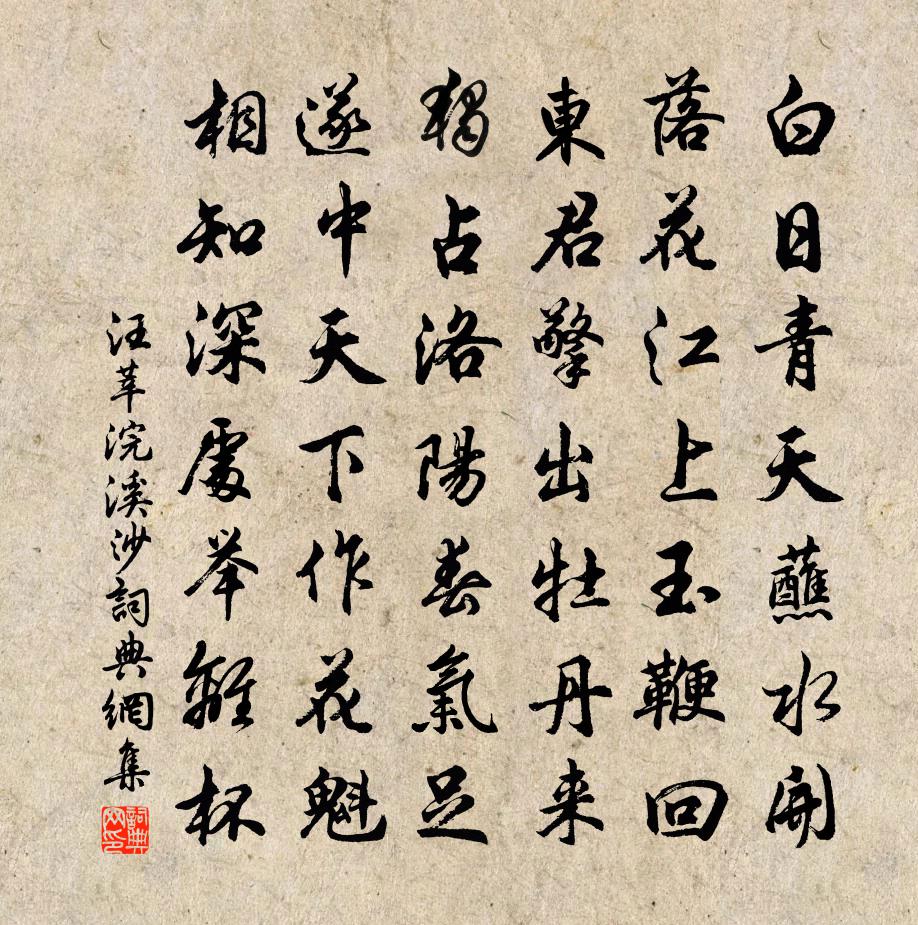 白日青天蘸水開
落花江上玉鞭回
東君擎出牡丹来
獨占洛陽春氣足
遂中天下作花魁
相知深處举離杯
汪莘浣溪沙詞典網集
詞典网印